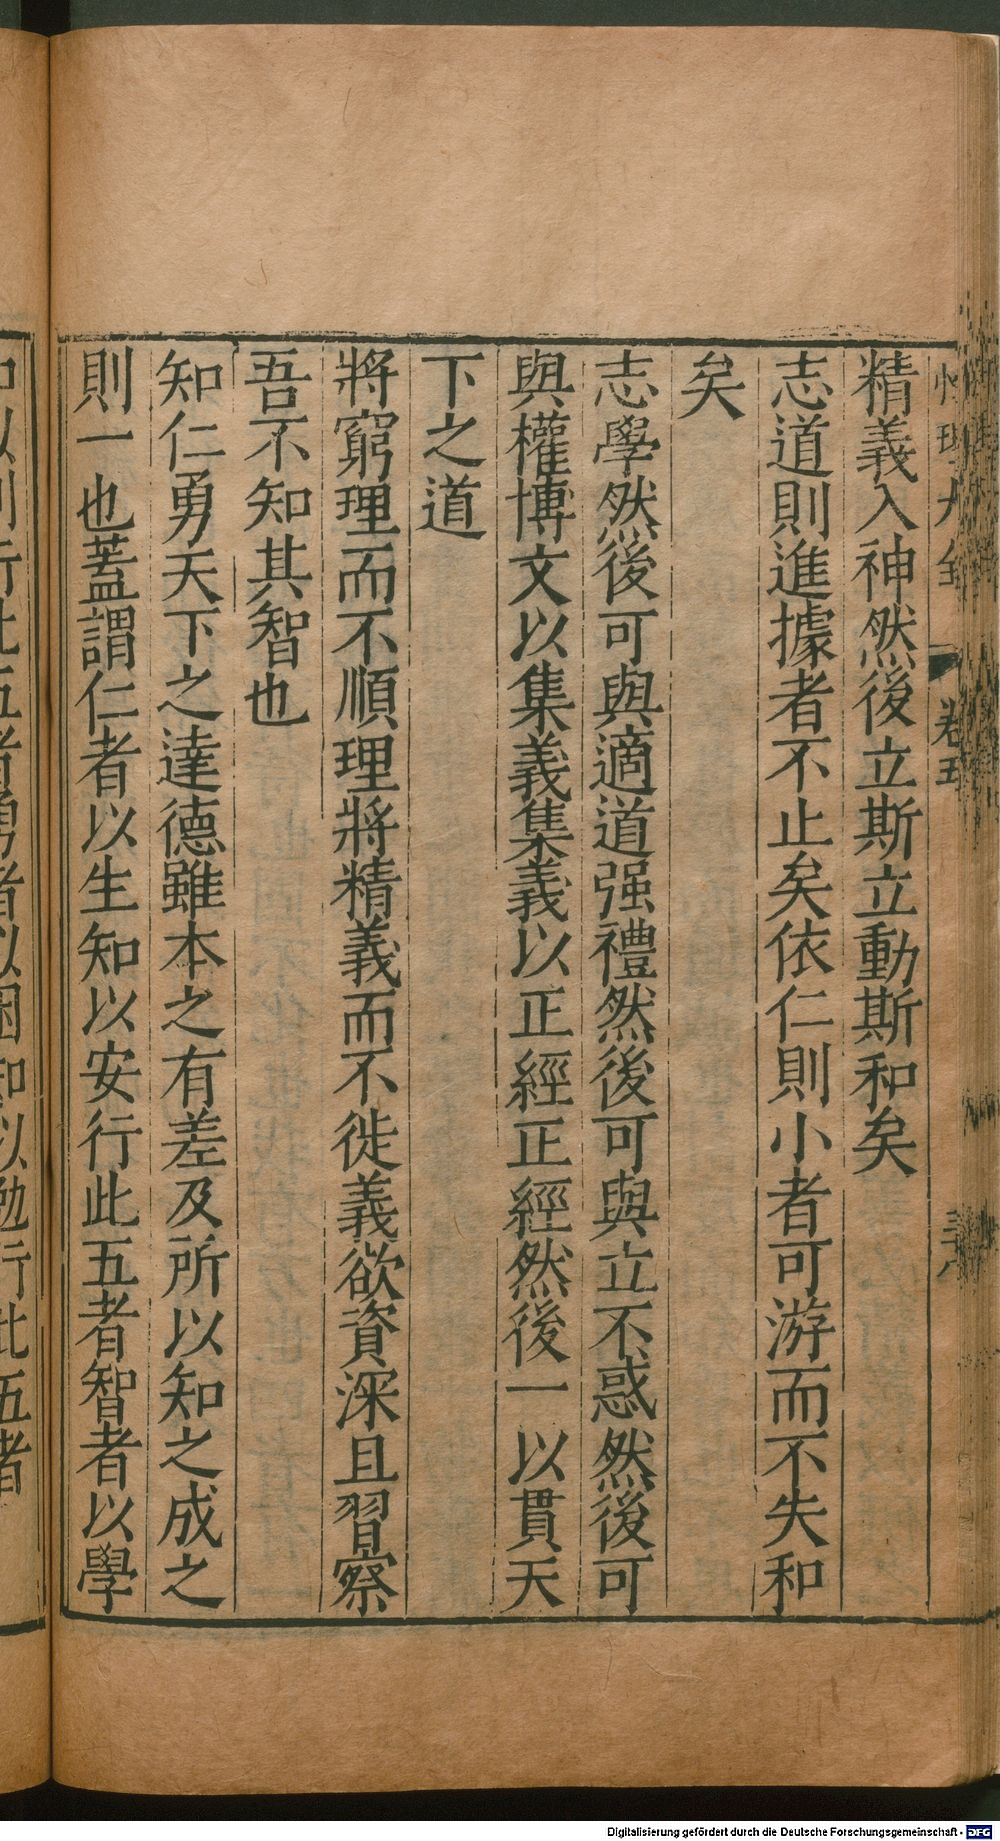 性理大全 卷五
精義入神然後立斯立動斯和矣
志道則進據者不止矣依仁則小者可游而不失和
矣
志學然後可與適道强禮然後可與立不惑然後可
與權博文以集義集義以正經正經然後一以貫天
下之道
將窮理而不順理將精義而不徙義欲資深且習察
吾不知其智也
知仁勇天下之達德雖本之有差及所以知之成之
則一也蓋謂仁者以生知以安行此五者智者以學
行此五者勇者以困知以勉行此五者
Digitalisierung gefördert durch die Deutsche Forschungsgemeinschaft - DFG